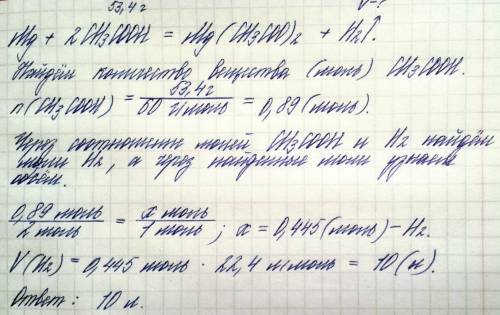 53,4 г V-?
Mg + 2CH3COOH = Mg(CH3COO)2 + H2↑.
Найдём количество вещества (моль) CH3COOH.
n(CH3COOH) = 53,4г / 60 г/моль = 0,89 (моль).
Через соотношения молей CH3COOH и H2 найдём
моли H2, а через найденные моли узнаем
объём.
0,89 моль / 2 моль = x моль / 1 моль ; x = 0,445 (моль) - H2.
V(H2) = 0,445 моль · 22,4 л/моль = 10 (л).
Ответ: 10 л.